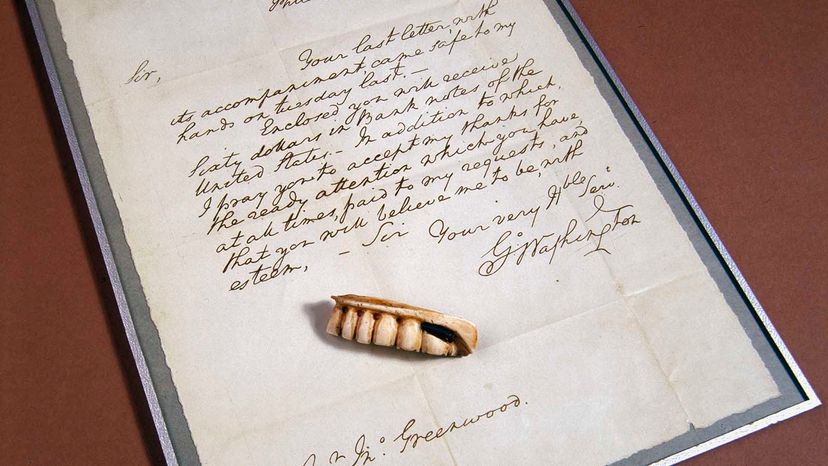 Sir,
Your last letter, with
its accompaniment came safe to my
hands on tuesday last.—
Enclosed you will receive
Sixty dollars in Bank notes of the
United States.— In addition to which,
I pray you to accept my thanks for
the ready attention which you have,
at all times, paid to my requests, and
that you will believe me to be, with
esteem, — Sir Your very Hble Serv.
G:Washington
Jno. Greenwood.